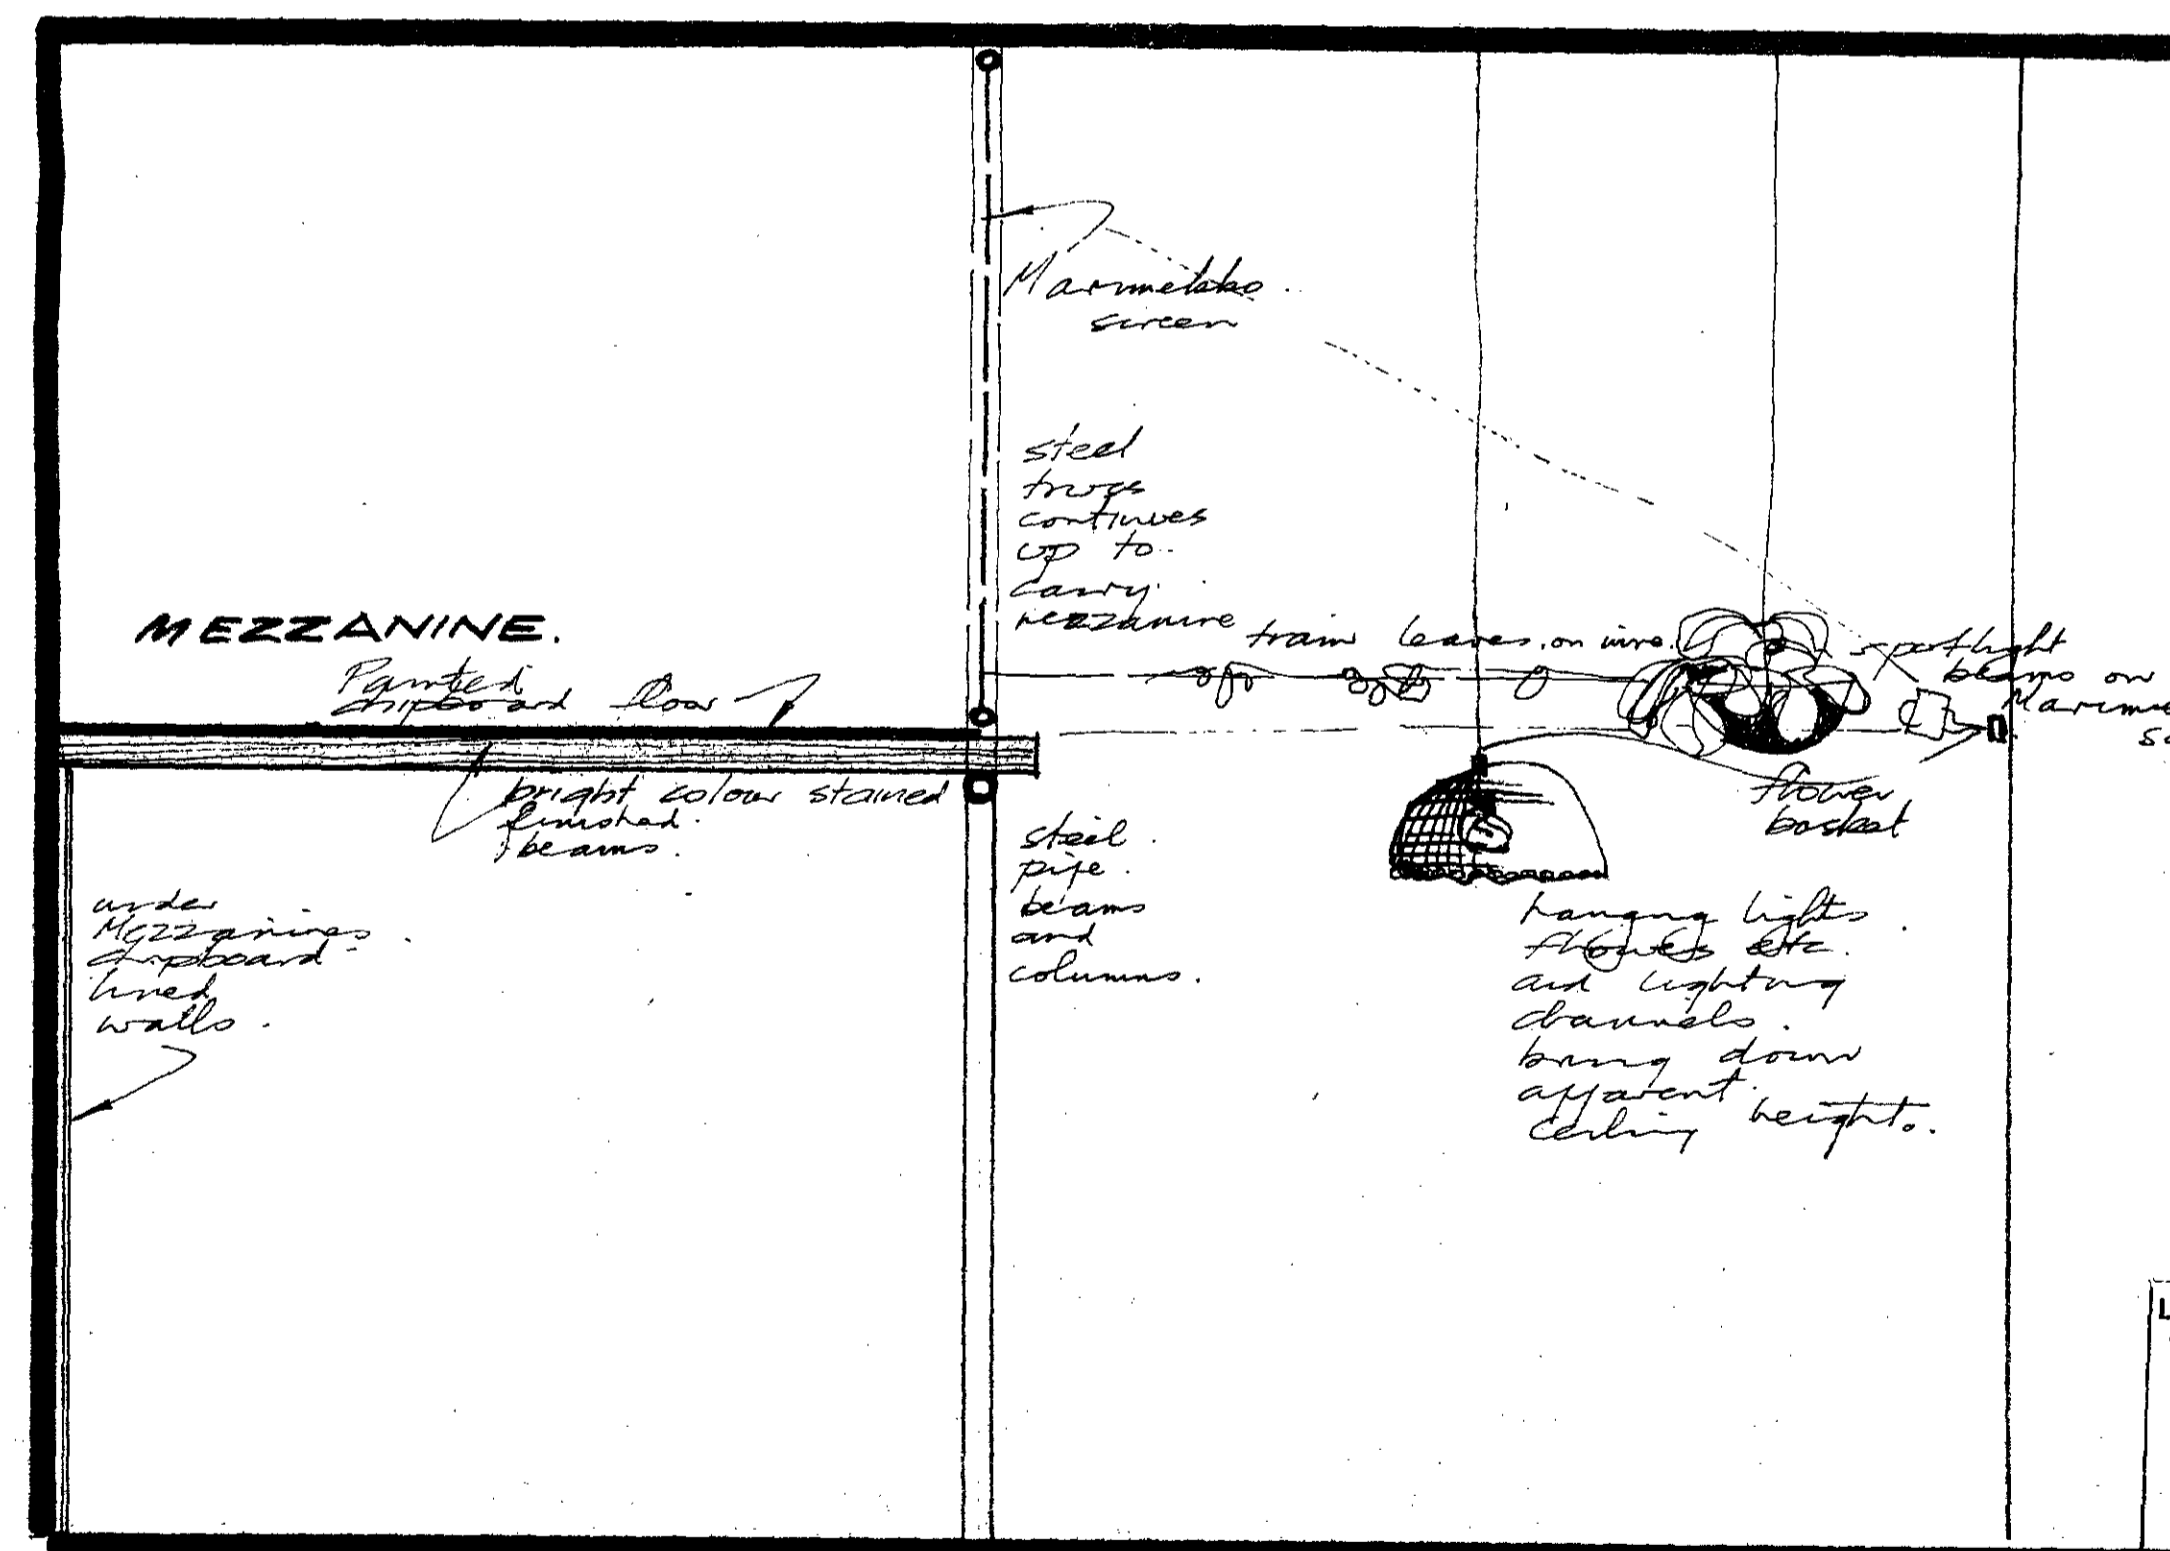 Marimekko
screen
steel
truss
continues
up to
carry
mezzanine
MEZZANINE.
Painted
chipboard floor
train leaves on wire.
spotlight
beams on
Marime
sc
bright colour stained
finished
beams.
flower
basket
steel
pipe
beams
and
columns.
under
Mezzanines
chipboard
lined
walls.
hanging lights
flowers etc.
and lighting
channels.
bring down
apparent
ceiling height.
L